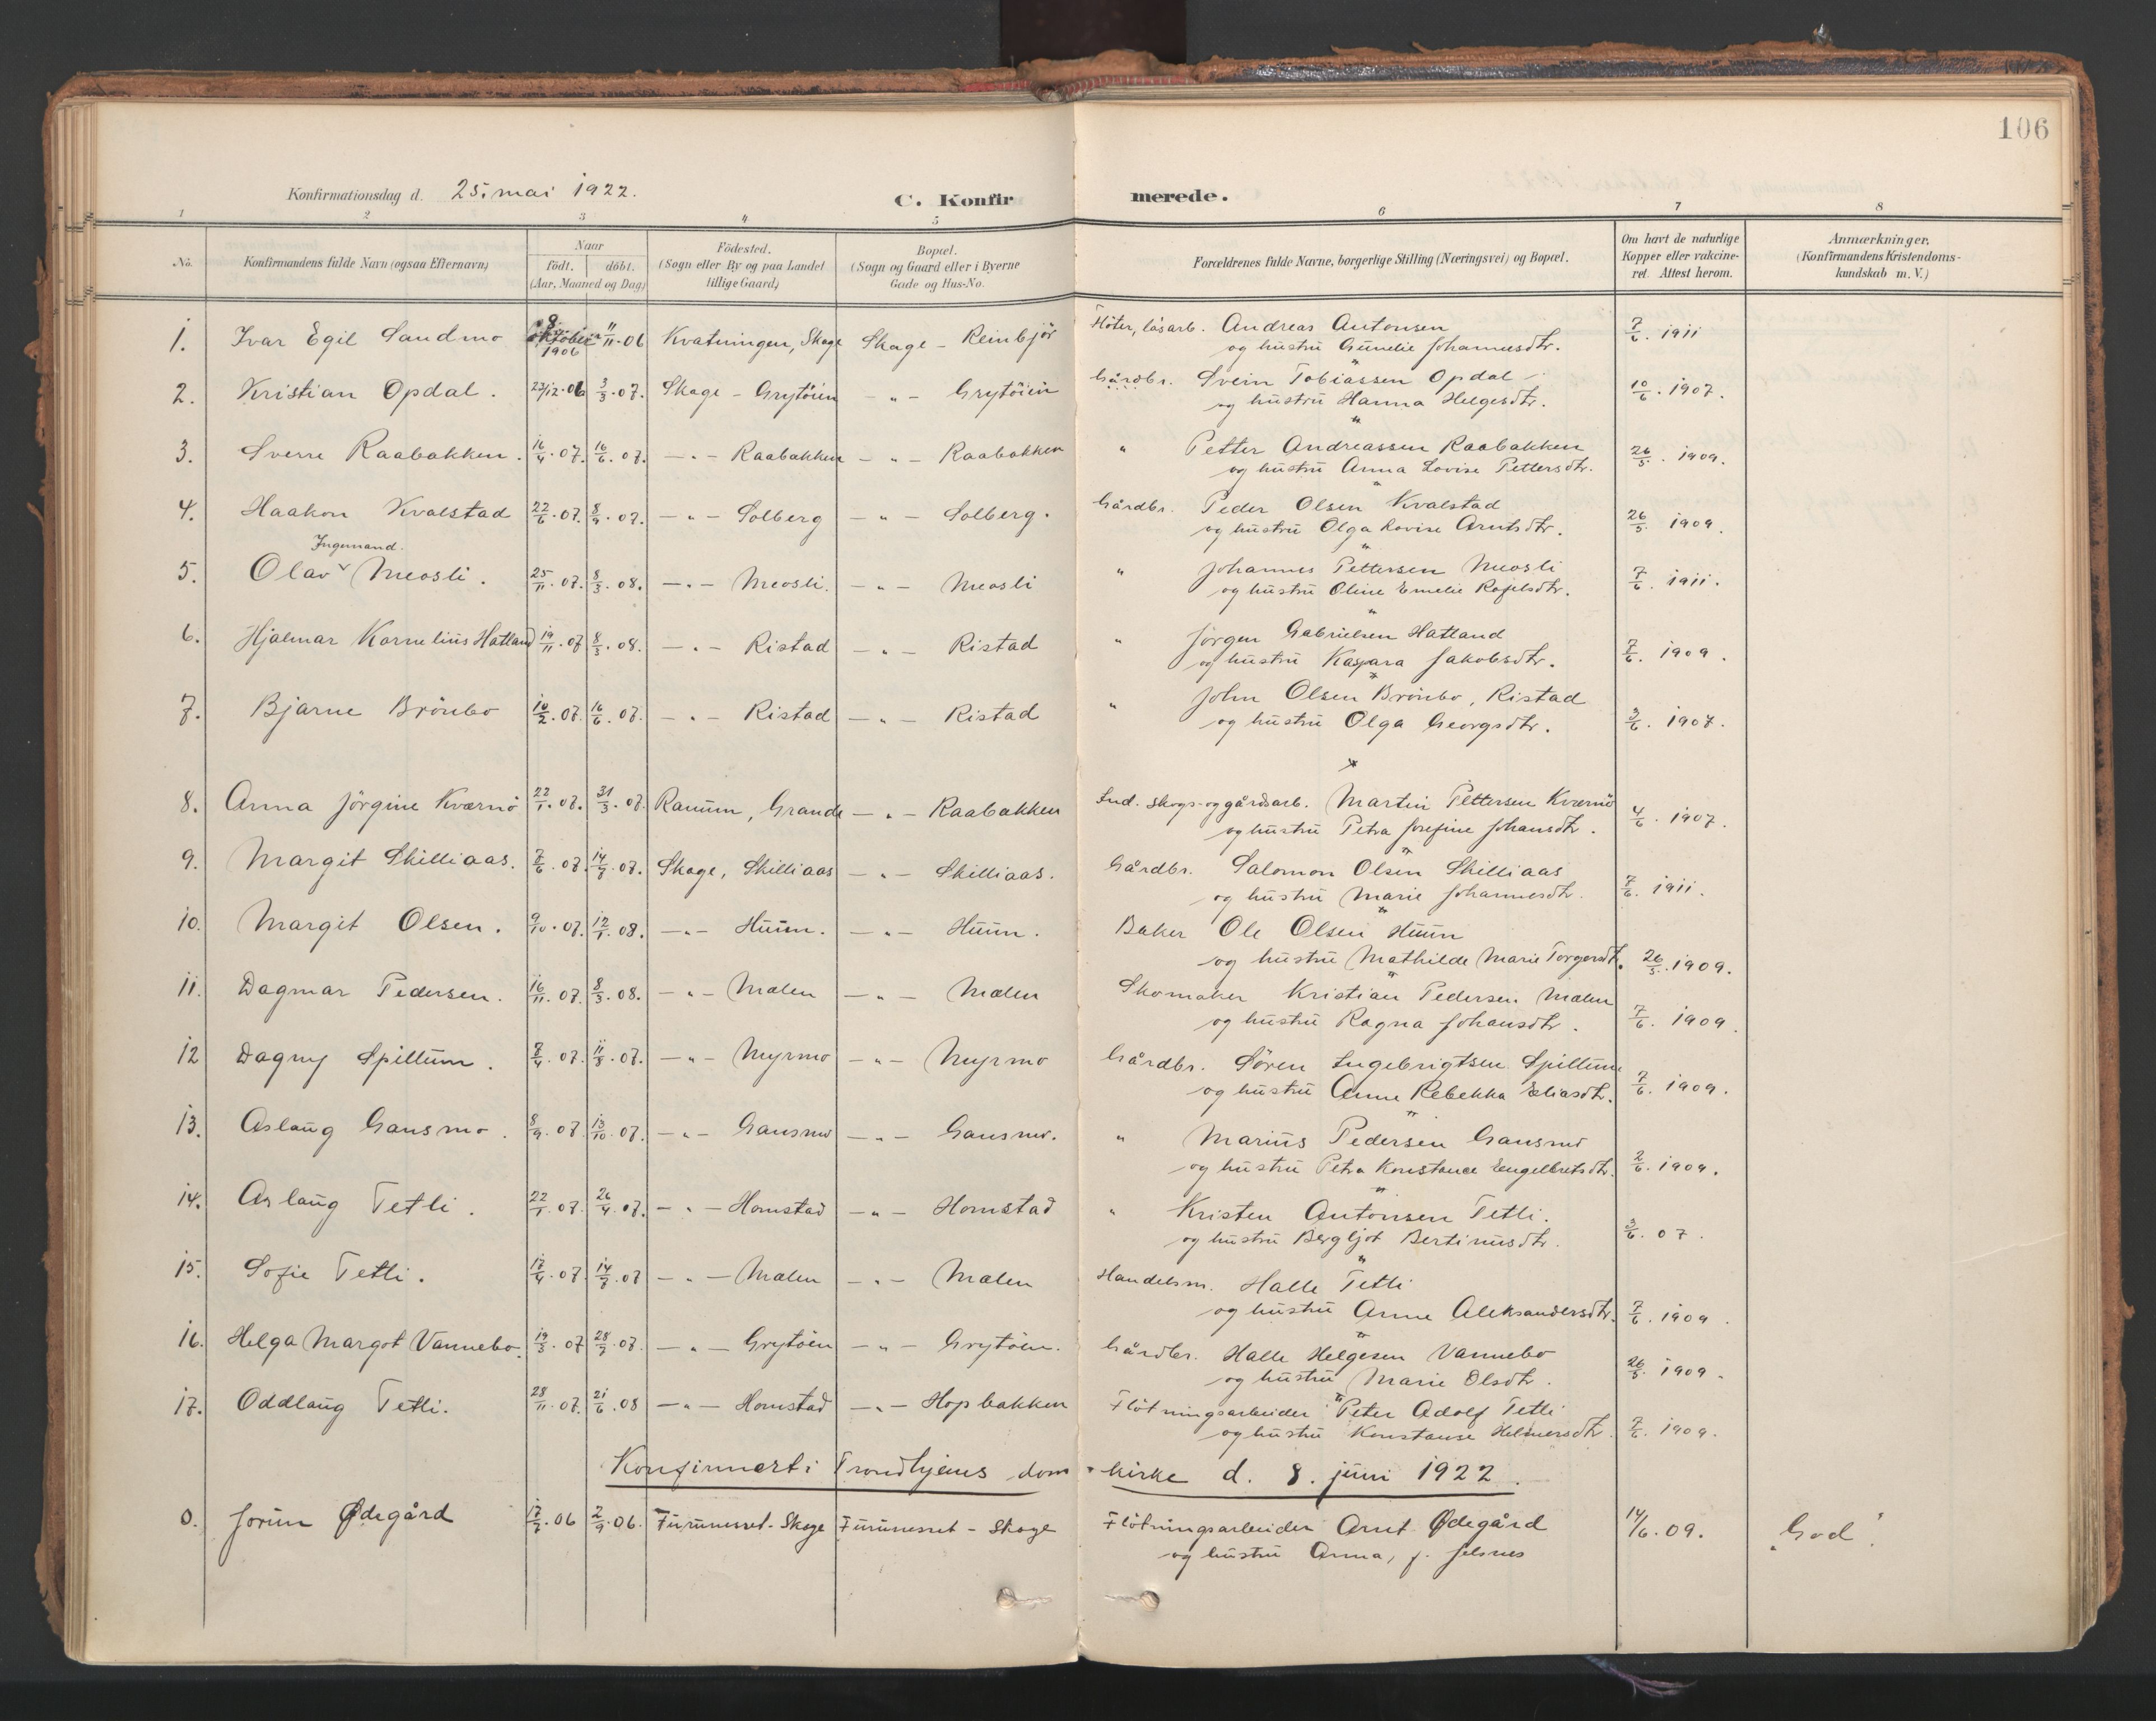 106
Konfirmationsdag d. 25. mai 1922.
C. Konfirmerede.
1 2 3 4 5 6 7 8
No.
Konfirmandens fulde Navn (ogsaa Efternavn)
Naar
født. døbt.
(Aar, Maaned og Dag)
Fødested.
(Sogn eller By og paa Landet
tillige Gaard)
Bopæl.
(Sogn og Gaard eller i Byerne
Gade og Hus-No.
Forældrenes fulde Navne, borgerlige Stilling (Næringsvei) og Bopæl.
Om havt de naturlige
Kopper eller vakcine-
ret. Attest herom.
Anmærkninger.
(Konfirmandens Kristendoms-
kundskab m. V.)
1. Ivar Egil Sandmo 9. oktober 1906 11/11·06 Kvatningen, Skage Skage - Reinbjør Fløter, løsarb. Andreas Antonsen 7/6. 1911
og hustru Gunelie Johannesdtr.
2. Kristian Opdal. 23/12·06 3/3·07. Skage - Grytøien - " - Grytøien Gårdbr. Svein Tobiassen Opdal 10/6. 1907.
og hustru Hanna Helgesdtr.
3. Sverre Raabakken. 16/4·07. 16/6·07. - " - Raabakken - " - Raabakken " Petter Andreassen Raabakken 26/5. 1909.
og hustru Anna Lovise Pettersdtr.
4. Haakon Kvalstad 22/6·07. 8/9·07. - " - Solberg - " - Solberg. Gårdbr. Peder Olsen Kvalstad 26/5. 1909.
og hustru Olga Lovise Arntsdtr.
Ingemand.
5. Olav Meosli. 25/11·07. 8/3·08. - " - Meosli. - " - Meosli " Johannes Pettersen Meosli 7/6. 1911.
og hustru Oline Emelie Rafelsdtr.
6. Hjalmar Kornelius Hatland 19/11·07 8/3·08. - " - Ristad - " - Ristad " Jørgen Gabrielsen Hatland 7/6. 1909.
og hustru Kaspara Jakobsdtr.
7. Bjarne Brønbo 10/2·07. 16/6·07. - " - Ristad - " - Ristad " John Olsen Brønbo, Ristad 3/6. 1907.
og hustru Olga Georgsdtr.
8. Anna Jørgine Kværnø 22/1·07. 31/3·07. Ranum, Grande - " - Raabakken Ind. skogs- og gårdsarb. Martin Pettersen Kværnø 4/6. 1907.
og hustru Petra Josefine Johansdtr.
9. Margit Skilliaas. 7/6·07. 14/7·07. Skage, Skilliaas - " - Skilliaas. Gårdbr. Salomon Olsen Skilliaas 7/6. 1911.
og hustru Marie Johannesdtr.
10. Margit Olsen. 9/10·07. 12/1·08. - " - Huun. - " - Huun. Baker Ole Olsen Huun
og hustru Mathilde Marie Torgersdtr. 26/5. 1909.
11. Dagmar Pedersen. 16/11·07. 8/3·08. - " - Mælen - " - Mælen Skomaker Kristian Pedersen Mælen
og hustru Ragna Johansdtr. 7/6. 1909.
12 Dagny Spillum. 7/4·07. 11/8·07. - " - Myrmo - " - Myrmo Gårdbr. Søren Ingebrigtsen Spillum
og hustru Anne Rebekka Eliasdtr. 7/6. 1909.
13. Aslaug Gansmo. 8/9·07 13/10·07. - " - Gansmo - " - Gansmo. " Marius Pedersen Gansmo
og hustru Petra Konstance Engelbretsdtr. 2/6. 1909.
14. Aslaug Tetli. 22/1·07. 26/4·07. - " - Homstad - " - Homstad " Kristen Antonsen Tetli.
og hustru Bergljot Bertinusdtr. 3/6. 07.
15. Sofie Tetli. 17/4·07 14/7·07 - " - Mælen - " - Mælen Handelsm. Halle Tetli
og hustru Anne Aleksandersdtr. 7/6. 1909.
16. Helga Margot Vannebo. 19/3·07 28/7·07. - " - Grytøen - " - Grytøen. Gårdbr. Halle Helgesen Vannebo
og hustru Marie Olsdtr. 26/5. 1909.
17. Oddlaug Tetli. 28/11·07. 21/6·08 - " - Homstad - " - Hopbakken Fløtningsarbeider Peter Adolf Tetli
og hustru Konstanse Helmersdtr. 7/6. 1909.
Konfirmert i Trondhjems domkirke d. 8. juni 1922.
0. Jorun Ødegård 17/7·06 2/9·06. Furunesset - Skage Furunesset - Skage Fløtningsarbeider Arnt Ødegård 14/6. 09. "God"
og hustru Anna, f. Jelsnes